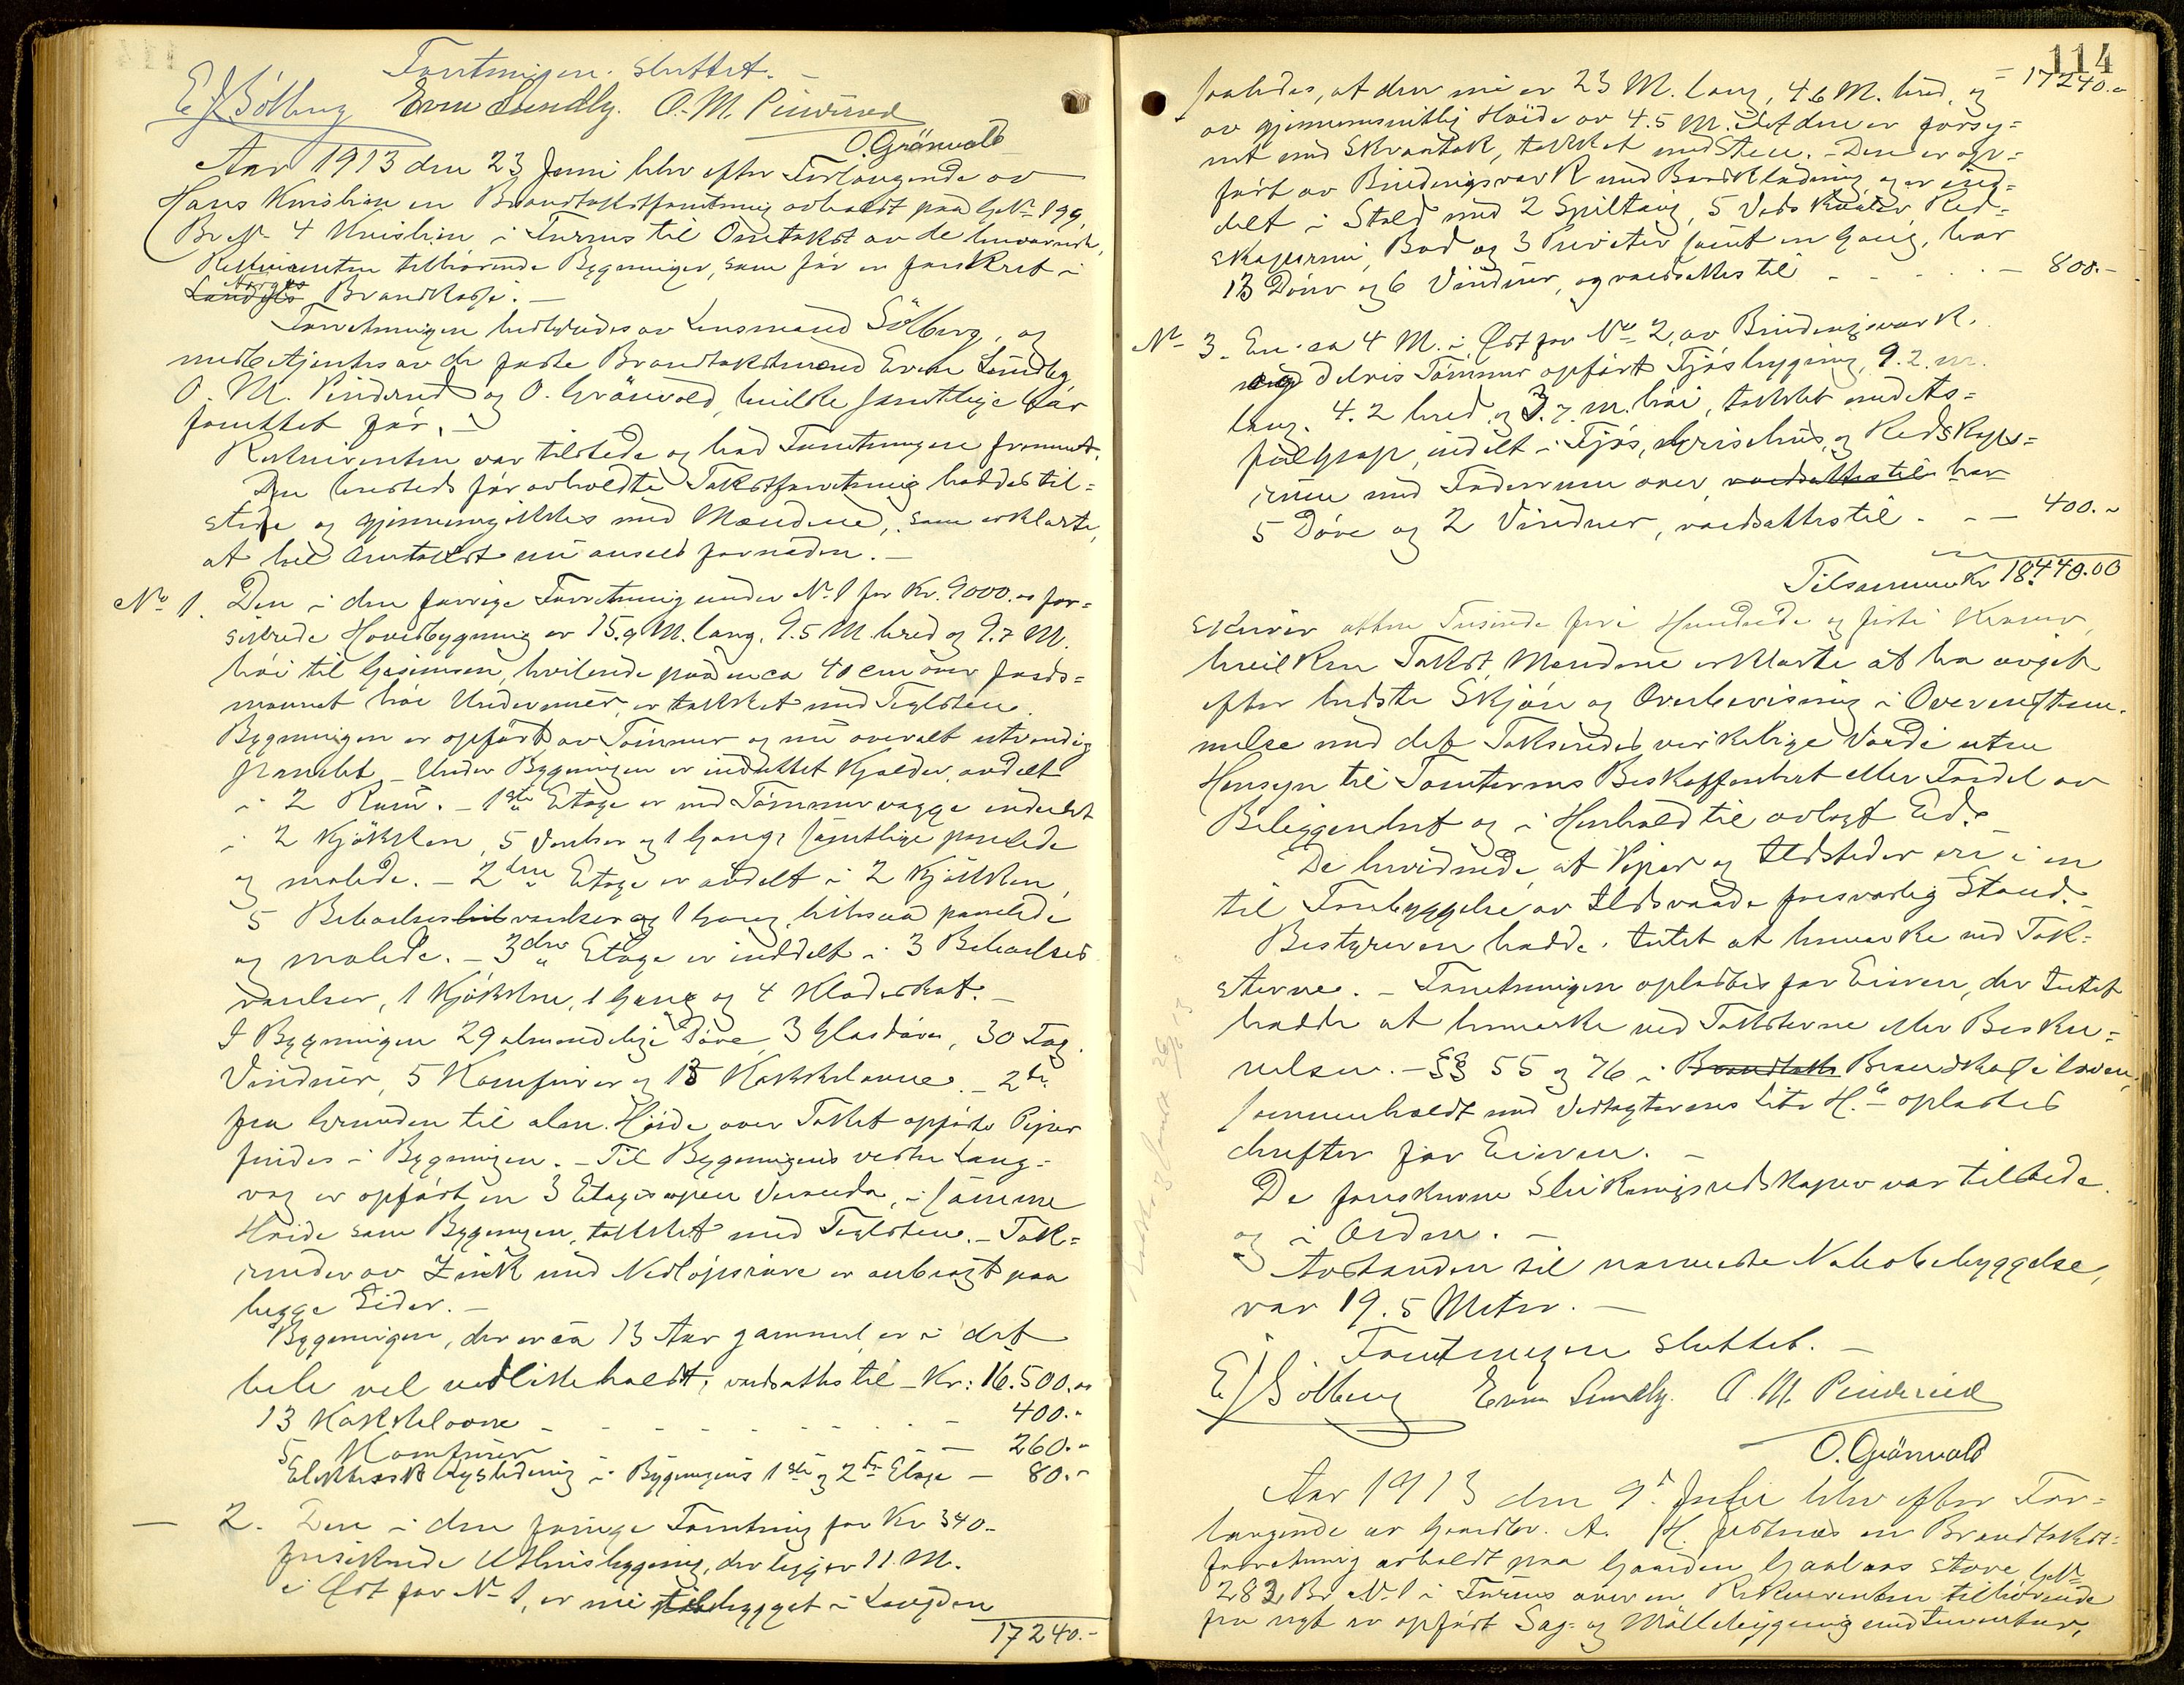 Forretningen sluttet. –
E. J. Solberg Even Sundby. O. M. Pinderud
O. Grönvold
Aar 1913 den 23 Juni blev efter Forlangende av
Hans Knishien en Brandtakstforretning avholdt paa G.No 199,
Br No 4 i Furnes til Omtakst av de
Rekvirenten tilhörende Bygninger, som för er forsikret i
Norges
Landets Brandkasse. –
Forretningen bestyredes av Lensmand Sölberg, og
med Betjentes av de faste Brandtakstmænd Even Sundby,
O. M. Pinderud og O. Grönvold, hvilke samtlige har
forrettet för. –
Rekvirenten var tilstede og bad Forretningen fremmet.
Den hersteds för avholdte Takstforretning haddes til=
stede og gjennemgikkes med Mændene, som erklærte,
at hel Omtakst nu ansees fornöden. –
No 1. Den i den forrige Forretning under No 1 for Kr. 9000.00 for=
sikrede Hovedbygning er 15.9 M. lang, 9.5 M. bred og 9.7 M.
höi til Gesimsen, hvilende paa en ca 40 cm over Jords=
monnet höi Undermur, er tækket med Teglsten.
Bygningen er opfört av Tömmer og nu overalt utvendig
panelet. – Under Bygningen er indrettet Kjælder, avdelt
i 2 Rum. – 1ste Etage er med Tömmervægge inddelt
i 2 Kjökken, 5 Værelser og 1 Gang, samtlige panelede
og malede. – 2den Etage er avdelt i 2 Kjökken,
5 Beboelsesværelser og 1 Gang, likesaa panelede
og malede. – 3die Etage er inddelt i 3 Beboelses
værelser, 1 Kjökken, 1 Gang og 4 Klædeskot. –
I Bygningen 29 almindelige Döre, 3 Glasdöre, 30 Fag
Vinduer, 5 Komfurer og 13 Kakkelovne. – 2de
fra Grunden til alm. Höide over Taket opförte Piper
findes i Bygningen. – Til Bygningens vestre Lang=
væg er opfört en 3 Etages aapen Veranda, i samme
Höide som Bygningen, tækket med Teglsten. – Tak=
render av Zink med Nedlöpsröre er anbragt paa
begge Sider. –
Bygningen, der er ca 13 Aar gammel, er i det
hele vel vedlikeholdt, værdsættes til – Kr: 16.500.00
13 Kakkelovne – – – – – 400.-
5 Komfurer – 260.-
Elektrisk Lysledning i Bygningens 1ste og 2den Etage – 80.-
– 2. Den i den forrige Forretning for Kr 340.-
forsikrede Uthusbygning, der ligger 11 M.
i Öst for No 1, er nu tilbygget i Længden
17240.-
114
saaledes, at den nu er 23 M. lang, 4.6 M. bred, og = 17240.-
av gjennemsnitlig Höide av 4.5 M. idet den er forsy=
net med Skraatak, tækket med Sten. – Den er op=
fört av Bindingsverk med Bordklædning og er ind=
delt i Stald med 2 Spiltaug, 5 Vedskuter, Red=
skapsrum, Bod og 3 Priveter samt en Gang, har
13 Döre og 6 Vinduer, og værdsættes til – – – 800.-
No 3. En ca 4 M. i Öst for No 2, av Bindingsverk
og delvis Tömmer opfört Fjösbygning, 9.2 m.
lang, 4.2 bred og 3.7 m. höi, tækket med As=
faltpap, indelt i Fjös, Grisehus, og Redskaps=
rum med Foderrum over, værdsættes til har
5 Döre og 2 Vinduer, værdsættes til – – 400.-
Tilsammen Kr 18.440.00
skriver atten Tusinde fire Hundrede og firti Kroner,
hvilken Takst Mændene erklærte at ha avgit
efter bedste Skjön og Overbevisning i Overensstem=
melse med det Takseredes virkelige Værdi uten
Hensyn til Tomternes Beskaffenhet eller Fordel av
Beliggenhet og i Henhold til avlagt Ed. –
De bevidnede, at Piper og Ildsteder er i en
til Forebyggelse av Ildsvaade forsvarlig Stand. –
Bestyreren hadde intet at bemerke ved Tak=
sterne. – Forretningen oplæstes for Eieren, der intet
hadde at bemerke ved Taksterne eller Beskri=
velsen. – §§ 55 og 76 i Brandtaks Brandkasseloven,
sammenholdt med Vedtægternes Litr H. 6 oplæstes
derefter for Eieren. –
De foreskrevne Slukningsredskaper var tilstede
og i Orden. –
Avstanden til nærmeste Nabobebyggelse,
var 19.5 Meter. –
Forretningen sluttet. –
E. J. Solberg Even Sundby. O. M. Pinderud
O. Grönvold
Aar 1913 den 9. Juli blev efter For=
langende av Gaardbr. A. H. en Brandtakst=
forretning avholdt paa Gaarden Gaalaas store, G.No
283 Br No 1 i Furnes over en Rekvirenten tilhörende
fra nyt av opfört Sag- og Möllebygning med Inventar,